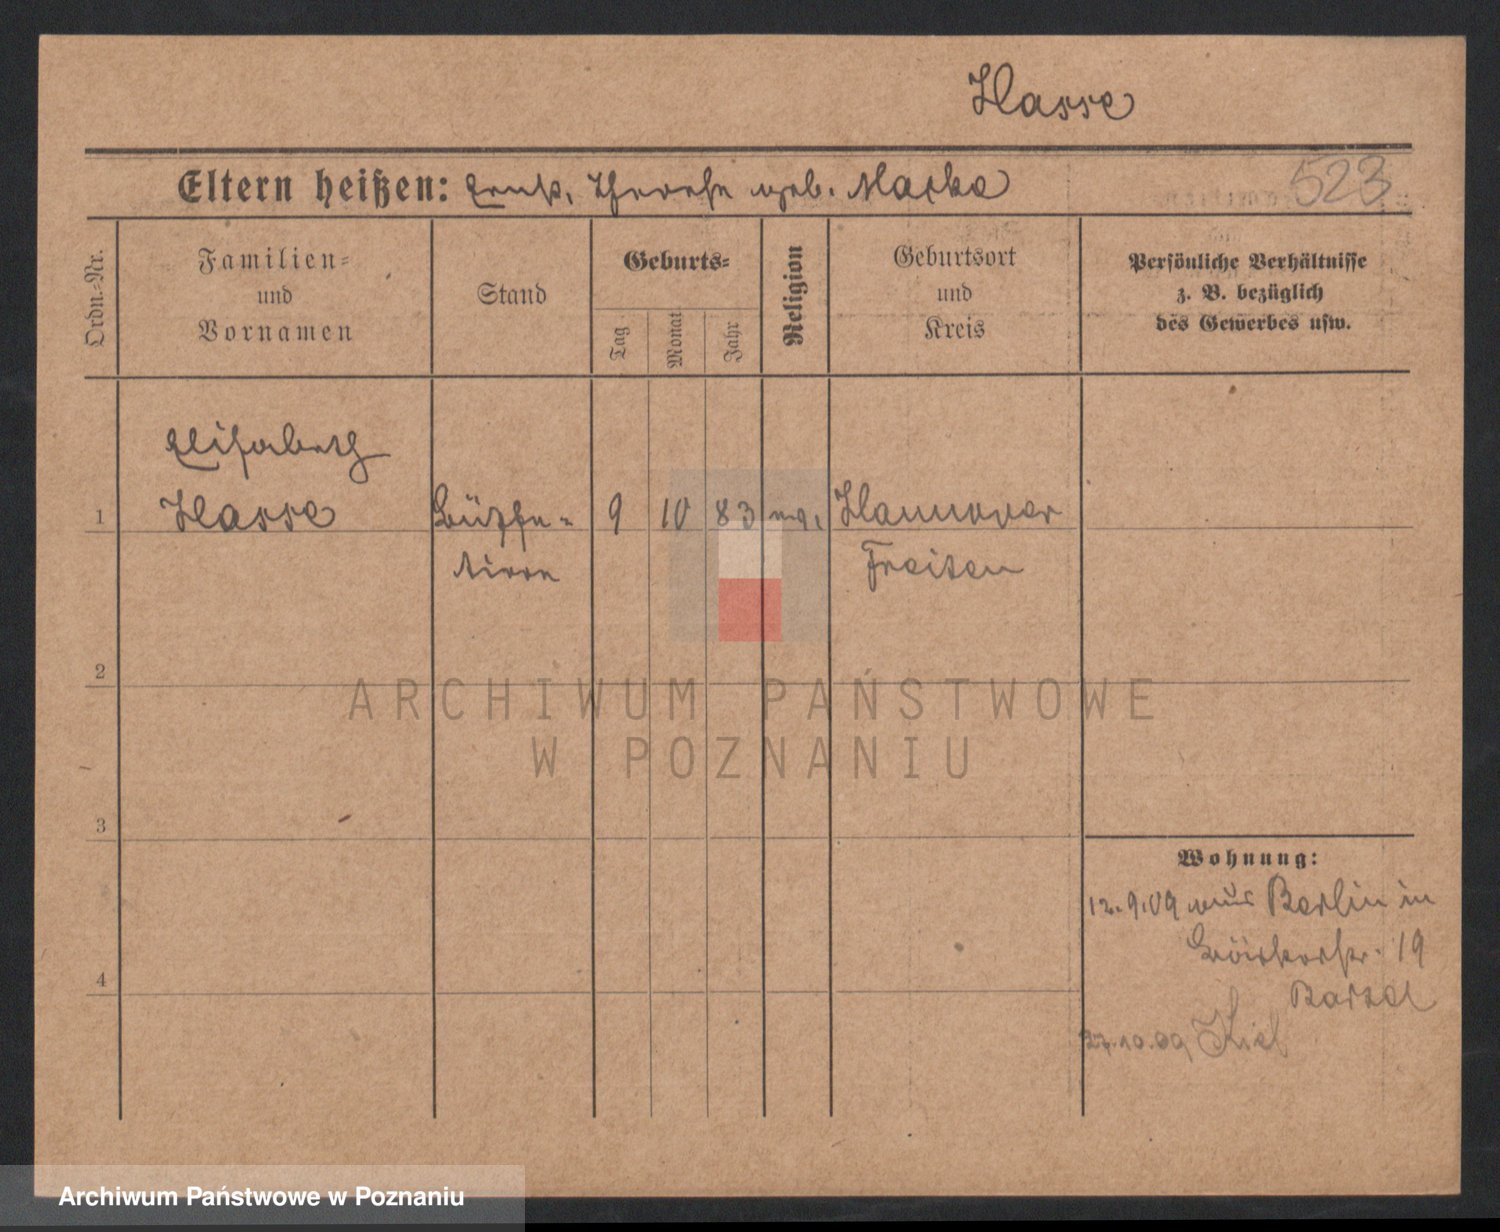 Hasse
Eltern heißen: Ernst, Therese geb. Marka
523
Ordn.-Nr.
Familien-
und
Vornamen
Stand
Geburts-
Tag
Monat
Jahr
Religion
Geburtsort
und
Kreis
Persönliche Verhältnisse
z. B. bezüglich
des Gewerbes usw.
Elisabeth
1 Hasse Büffe- 9 10 83 ev. Hannover
tiere
2
3
4
Wohnung:
12.9.09 aus Berlin in
19
27.10.09 Kiel
ARCHIWUM PAŃSTWOWE
W POZNANIU
Archiwum Państwowe w Poznaniu